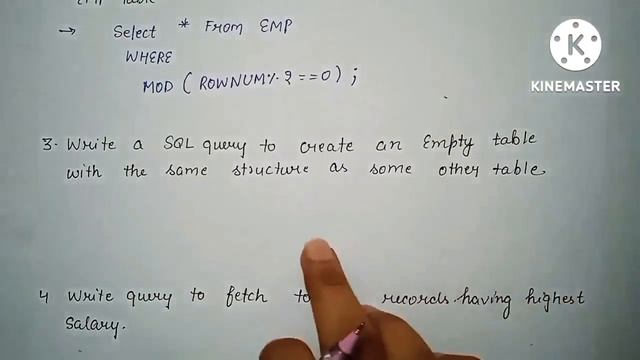 EMP Table
→ Select * From EMP
WHERE
MOD ( ROWNUM % 2 == 0 ) ;
KINEMASTER
3. Write a SQL query to create an Empty table
with the same structure as some other table.
4 Write query to fetch records having highest
Salary.